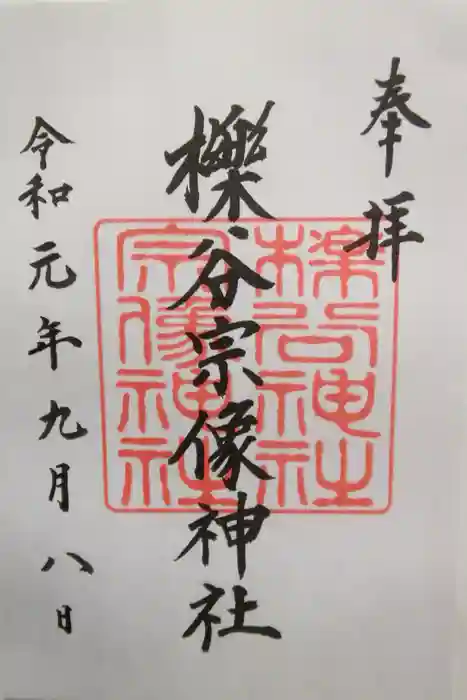 奉拝
櫟谷宗像神社
令和元年九月八日
櫟谷神社
宗像神社